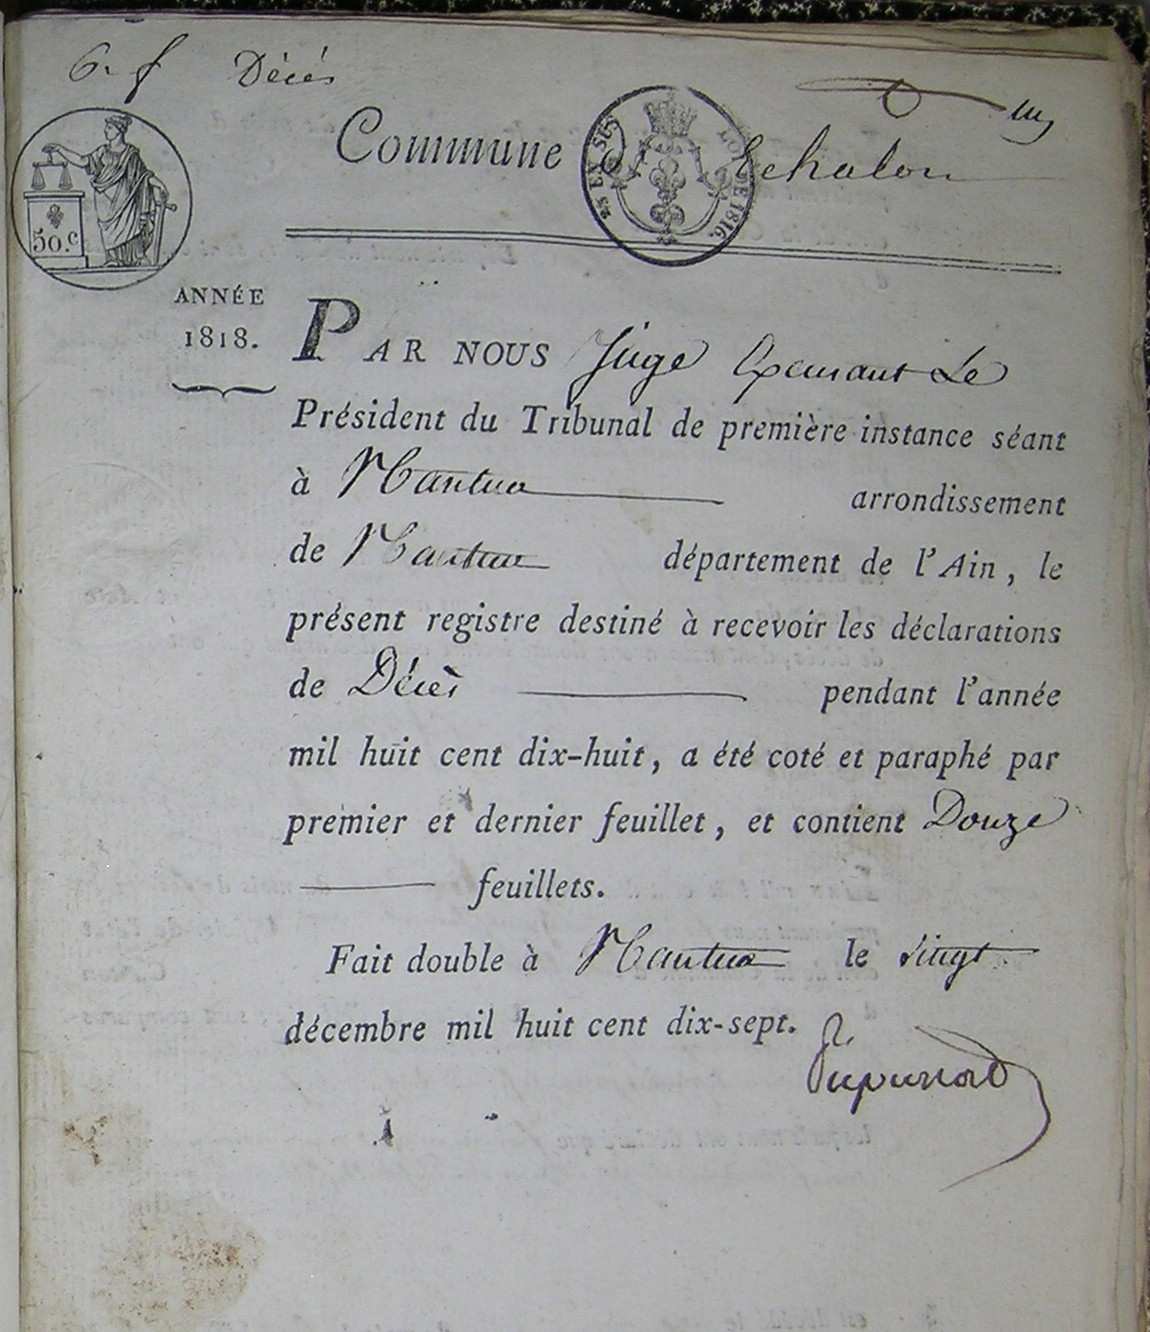 6. f Décés
Commune d'Echalon
25 EN SUS
LOI DE 1816.
50.c
ANNÉE
1818.
PAR NOUS Juge Exerçant Le
Président du Tribunal de première instance séant
à Nantua arrondissement
de Nantua département de l'Ain, le
présent registre destiné à recevoir les déclarations
de Décès pendant l'année
mil huit cent dix-huit, a été coté et paraphé par
premier et dernier feuillet, et contient Douze
feuillets.
Fait double à Nantua le vingt
décembre mil huit cent dix-sept.